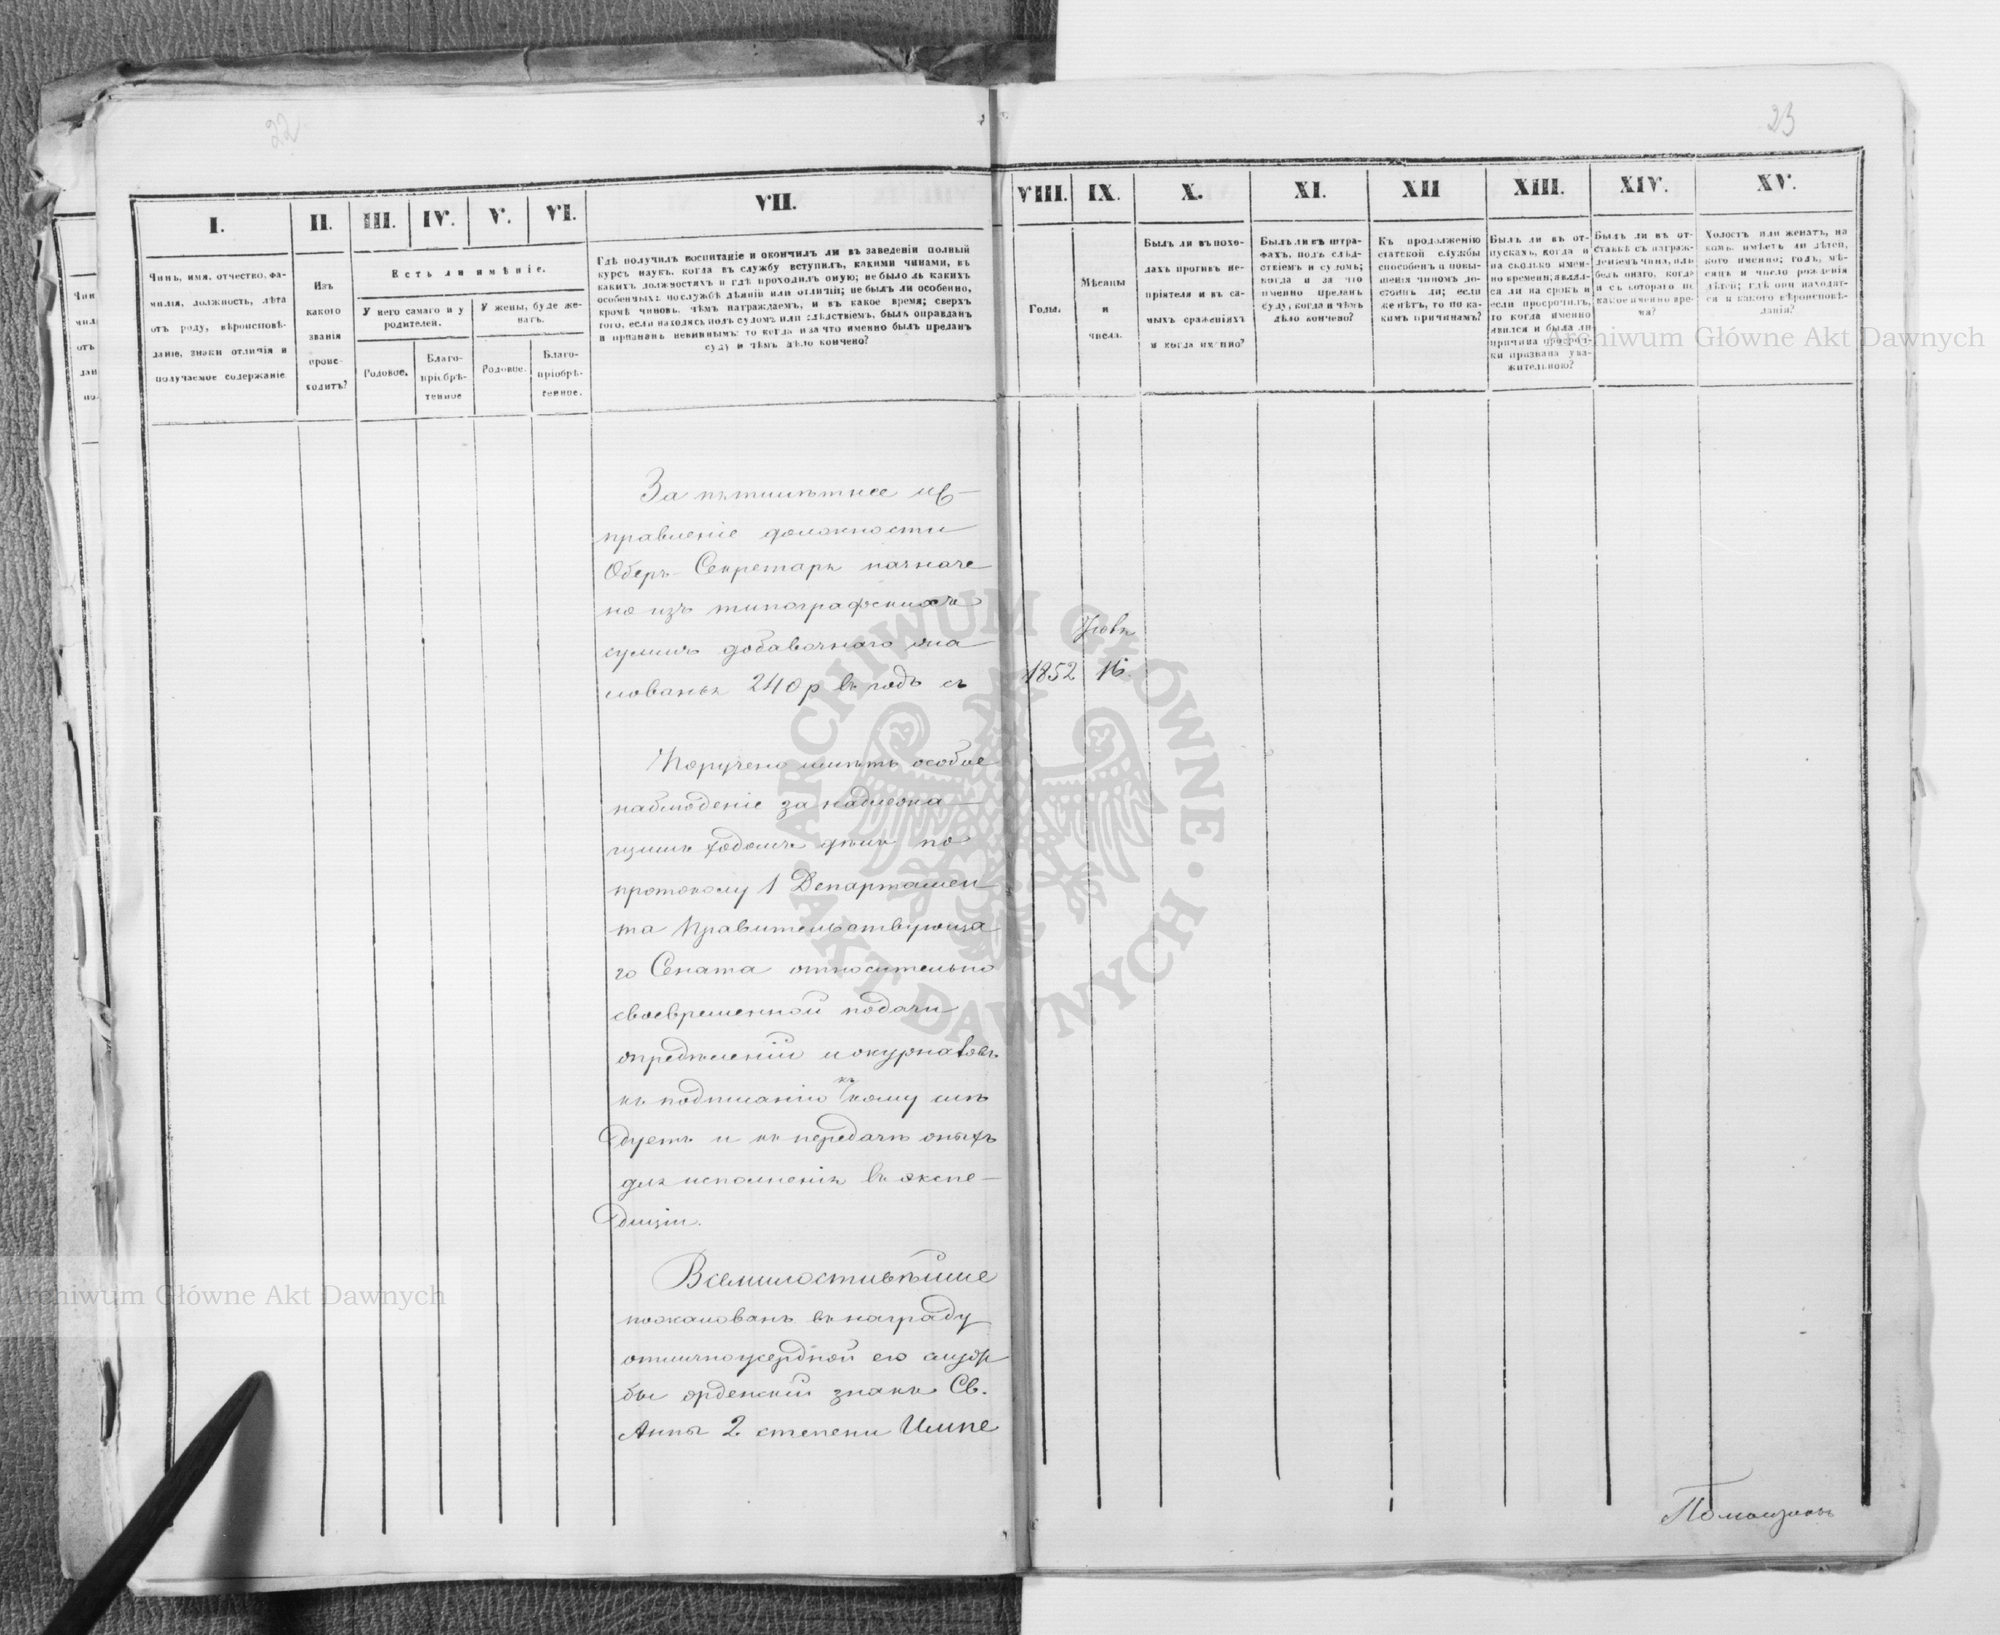 22
23
I.
II.
III.
IV.
V.
VI.
VII.
VIII.
IX.
X.
XI.
XII
XIII.
XIV.
XV.
Чинъ, имя, отчество, фа-
милія, должность, лѣта
отъ роду, вѣроисповѣ-
даніе, знаки отличія и
получаемое содержаніе.
Изъ
какого
званія
проис-
ходитъ?
Есть ли имѣніе.
У него самаго и у
родителей.
У жены, буде же-
натъ.
Родовое.
Благо-
пріобрѣ-
тенное
Родовое.
Благо-
пріобрѣ-
тенное.
Гдѣ получилъ воспитаніе и окончилъ ли въ заведеніи полный
курсъ наукъ, когда въ службу вступилъ, какими чинами, въ
какихъ должностяхъ и гдѣ проходилъ оную; не было ль какихъ
особенныхъ по службѣ дѣяній или отличій; не былъ ли особенно,
кромѣ чиновъ, чѣмъ награждаемъ, и въ какое время; сверхъ
того, если находясь подъ судомъ или слѣдствіемъ, былъ оправданъ
и признанъ невиннымъ: то когда и за что именно былъ преданъ
суду и чѣмъ дѣло кончено?
Годы.
Мѣсяцы
и
числа.
Былъ ли въ похо-
дахъ противъ не-
пріятеля и въ са-
мыхъ сраженіяхъ
и когда именно?
Былъ ли въ штра-
фахъ, подъ слѣд-
ствіемъ и судомъ;
когда и за что
именно преданъ
суду, когда и чѣмъ
дѣло кончено?
Къ продолженію
статской службы
способенъ и повы-
шенія чиномъ до-
стоинъ ли; если
же нѣтъ, то по ка-
кимъ причинамъ?
Былъ ли въ от-
пускахъ, когда и
на сколько имен-
но времени; являл-
ся ли на срокъ и
если просрочилъ,
то когда именно
явился и была ли
причина просроч-
ки признана ува-
жительною?
Былъ ли въ от-
ставкѣ съ награж-
деніемъ чина, или
безъ онаго, когда
и съ котораго по
какое именно вре-
мя?
Холостъ или женатъ, на
комъ, имѣетъ ли дѣтей,
кого именно; годъ, мѣ-
сяцъ и число рожденія
дѣтей; гдѣ они находят-
ся и какого вѣроисповѣ-
данія?
За пятилѣтнее ис-
правленіе должности
Оберъ-Секретаря назначе
но изъ типографскихъ
суммъ добавочнаго жа
лованья 240 р въ годъ съ
1852
16.
Поручено имѣть особое
наблюденіе за надлежа-
щимъ ходомъ дѣлъ по
протоколу 1 Департамен
та Правительствующа
го Сената относительно
своевременной подачи
опредѣленій и журналовъ
къ подписанію къ кому слѣ
дуетъ и къ передачѣ оныхъ
для исполненія въ экспе-
диціи.
Всемилостивѣйше
пожалованъ въ награду
отличноусердной его служ
бы орденскій знакъ Св.
Анны 2 степени Импе
Archiwum Główne Akt Dawnych
Archiwum Główne Akt Dawnych
ARCHIWUM GŁÓWNE · AKT DAWNYCH ·